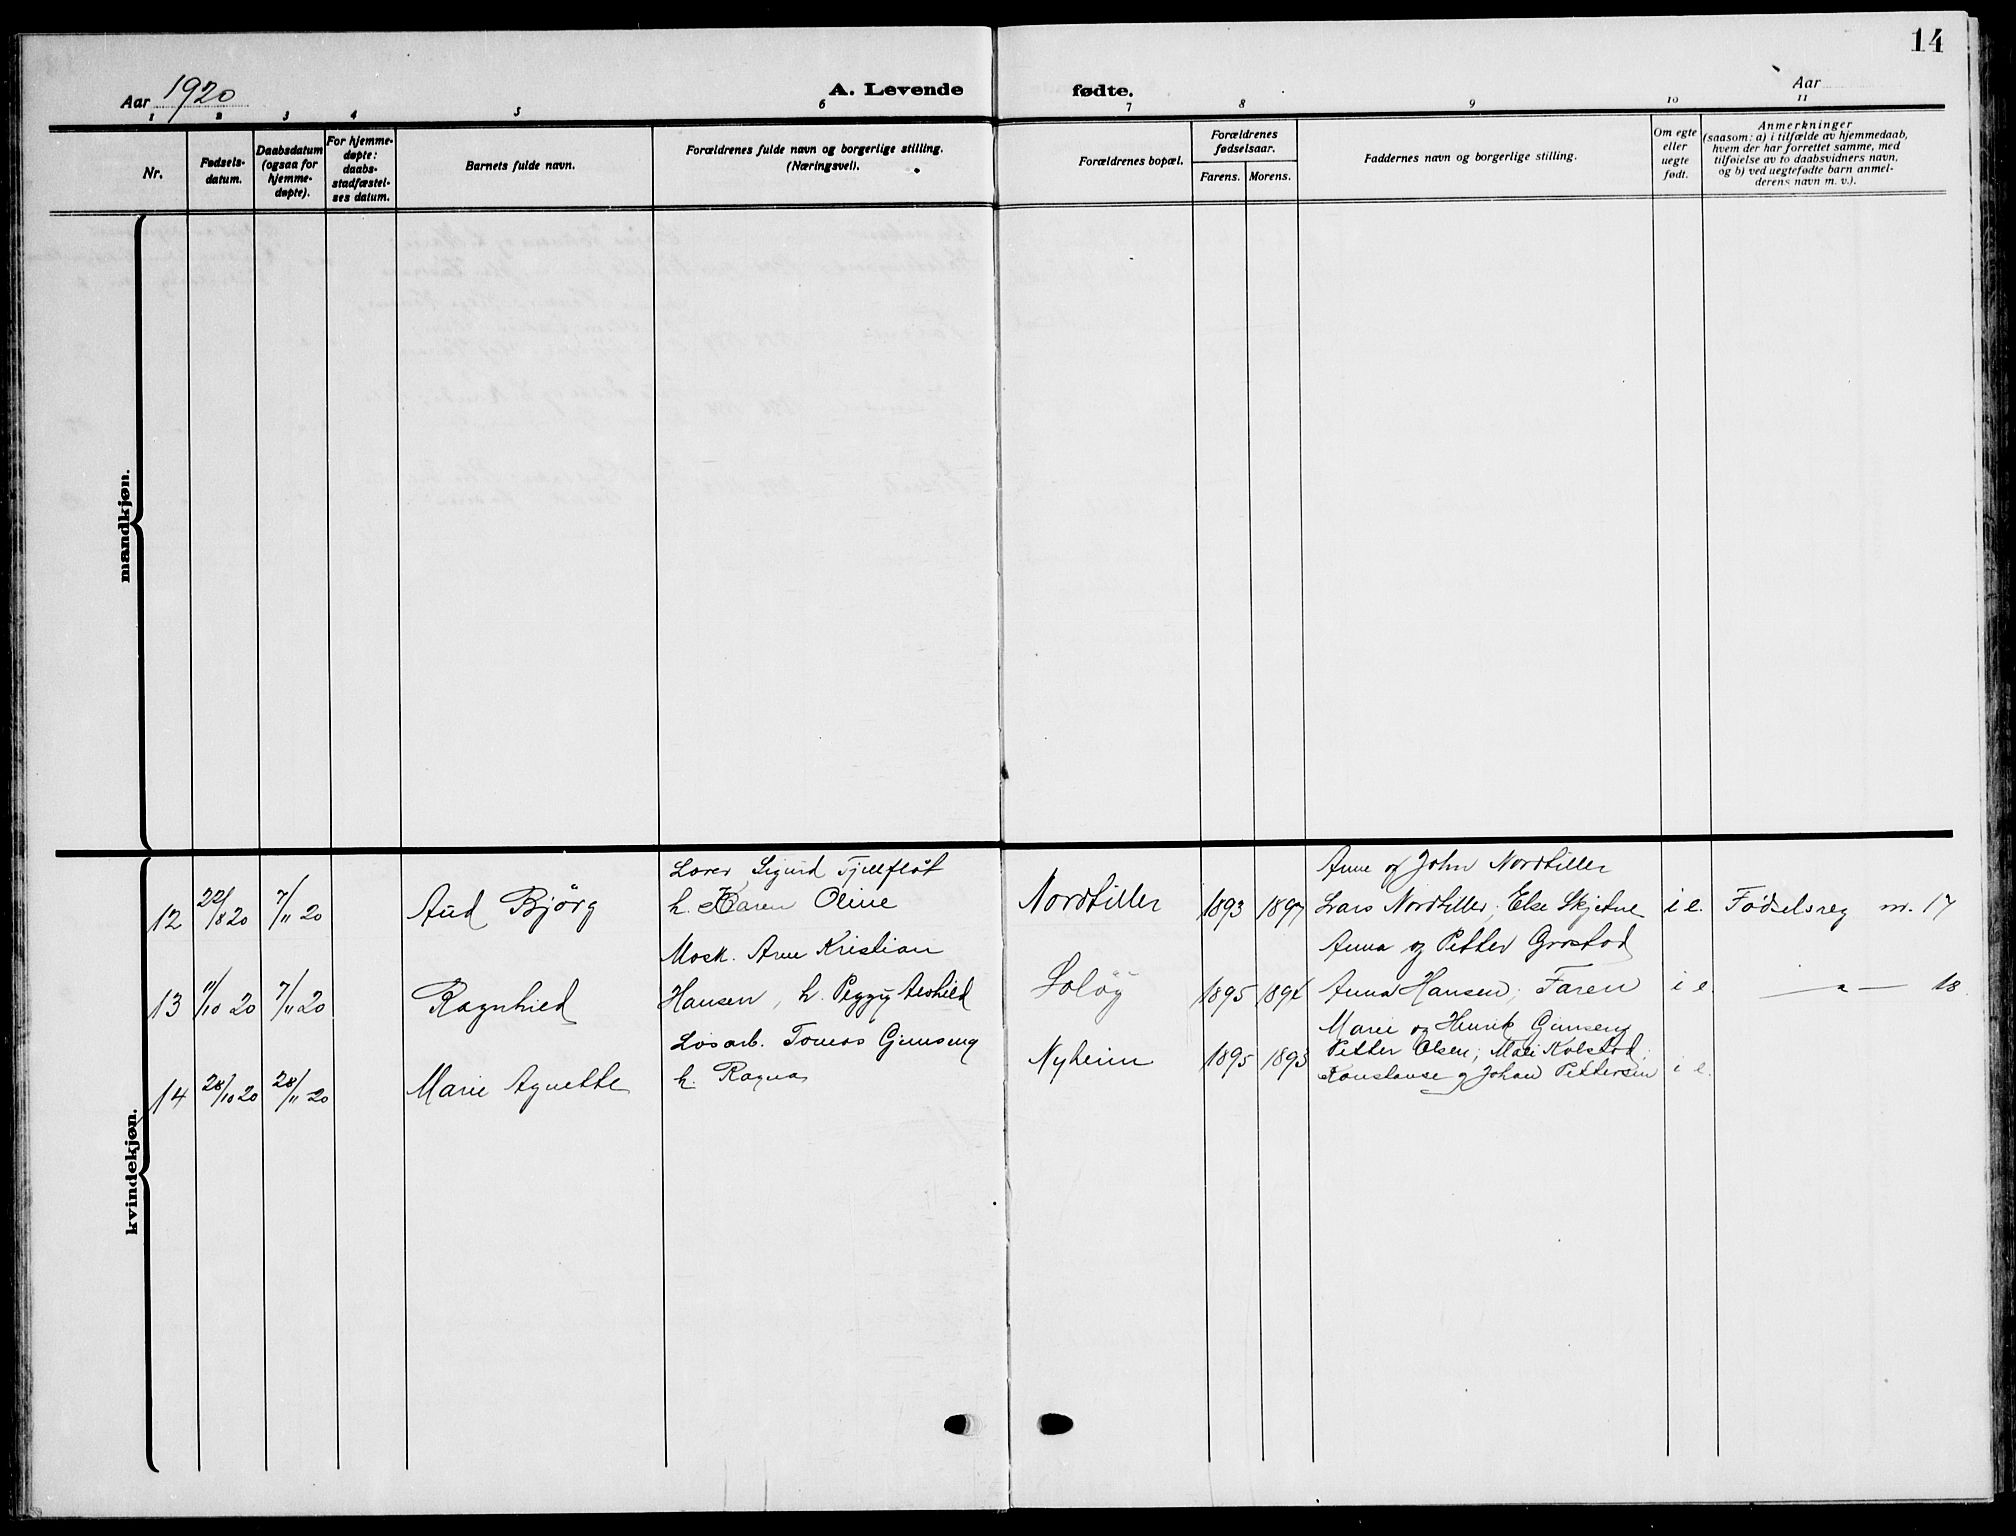 14
Aar 1920
A. Levende fødte.
Aar
1 2 3 4 5 6 7 8 9 10 11
Nr.
Fødsels-
datum.
Daabsdatum
(ogsaa for
hjemme-
døpte).
For hjemme-
døpte:
daabs-
stadfæstel-
ses datum.
Barnets fulde navn.
Forældrenes fulde navn og borgerlige stilling.
(Næringsvei).
Forældrenes bopæl.
Forældrenes
fødselsaar.
Farens. Morens.
Faddernes navn og borgerlige stilling.
Om egte
eller
uegte
født.
Anmerkninger
(saasom: a) i tilfælde av hjemmedaab,
hvem der har forrettet samme, med
tilføielse av to daabsvidners navn,
og b) ved uegtefødte barn anmel-
derens navn m. v.).
mandkjøn.
kvindekjøn.
12
22/8 20
7/11 20
Aud Bjørg
Lærer Sigurd
h. Karen Oline
Nordtiller
1893 1897
Anne og John Nordtiller
Lars Nordtiller; Else Skjetne
i e.
Fødselsreg nr. 17
13
11/10 20
7/11 20
Ragnhild
Mask. Arne Kristian
Hansen, h. Peggy
1895
Anna og Petter
Anna Hansen; Faren
i e.
— " — 18
14
28/10 20
28/11 20
Marie Agnette
Løsarb. Tomas Gimseng
h. Ragna
Nyheim
1895 1893
Marie og Henrik Gimseng
Petter Olsen; Kolstad;
Konstanse og Johan Pettersen
i e.